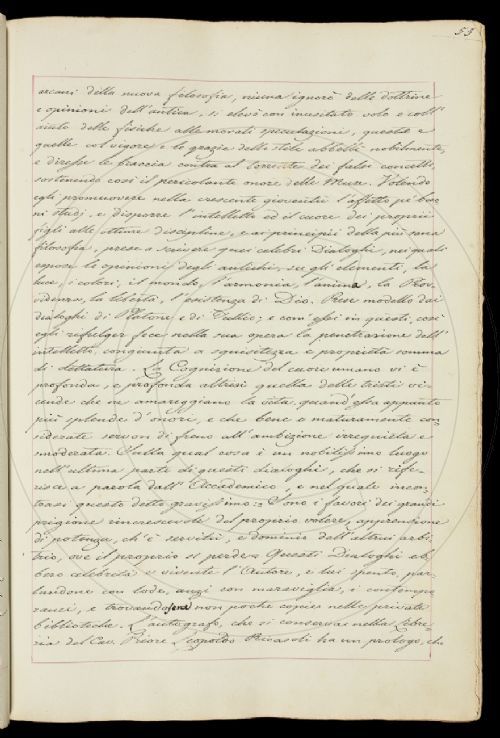 55
arcani della nuova filosofia, niuna ignorò delle dottrine
e opinioni dell'antica, si elevò con inusitato volo e coll'
aiuto delle fisiche alle morali speculazioni, queste e
quelle col vigore e le grazie dello stile abbellì nobilmente,
e diresse le braccia contro al torrente dei falsi concetti
sostenendo così il pericolante onore delle Muse. Volendo
egli promuovere nella crescente gioventù l'affetto pe' buo-
ni studj, e disporre l'intelletto ed il cuore dei proprii
figli alle ottime discipline, e ai principii della più sana
filosofia, prese a scrivere quei celebri Dialoghi, nei quali
espose le opinioni degli antichi, su gli elementi, la
luce, i colori, il mondo, l'armonia, l'anima, la Prov-
videnza, la libertà, l'esistenza di Dio. Prese modello dai
dialoghi di Platone e di Tullio; e com'essi in questi, così
egli rifulger fece nella sua opera la penetrazione dell'
intelletto, congiunta a squisitezza e proprietà somma
di dettatura. La Cognizione del cuore umano vi è
profonda, e profonda altresì quella delle tristi vi-
cende che ne amareggiano la vita quand'essa appunto
più splende d'onori, e che bene e maturamente con-
siderate servon di freno all'ambizione irrequieta e
smoderata. Sulla qual cosa è un nobilissimo luogo
nell'ultima parte di questi dialoghi, che si rife-
risce a parola dall'Accademico, e nel quale incon-
trasi questo detto gravissimo: Sono i favori dei grandi
prigione rincrescevole del proprio volere, apprensione
di potenza, ch'è servitù, e dominio dell'altrui arbi-
trio, ove il proprio si perde. Questi Dialoghi eb-
bero celebrità vivente l'Autore, e lui spento, par-
landone con lode, anzi con maraviglia, i contempo-
ranei, e trovandosene non poche copie nelle private
biblioteche. L'autografo, che si conserva nella Libre-
ria del Cav. Priore Leopoldo Ricasoli ha un prologo, che